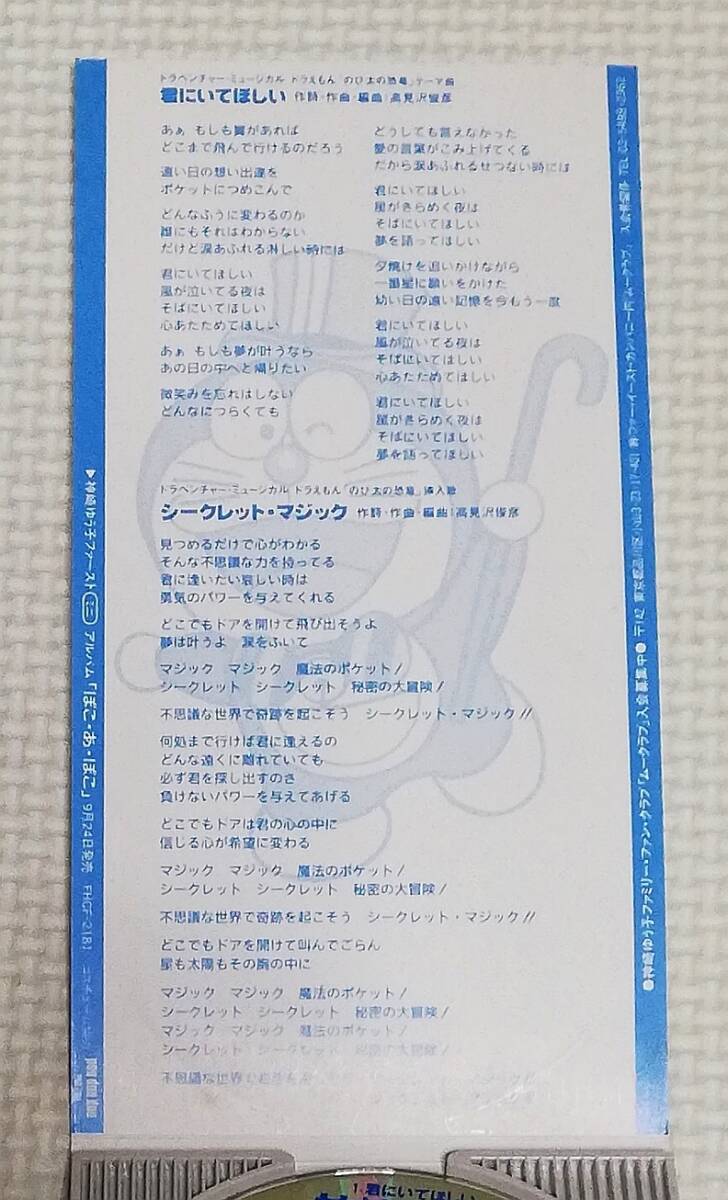 ドラベンチャー・ミュージカル ドラえもん 「のび太の恐竜」テーマ曲
君にいてほしい 作詩・作曲・編曲:高見沢俊彦
あぁ もしも翼があれば
どこまで飛んで行けるのだろう
遠い日の想い出達を
ポケットにつめこんで
どんなふうに変わるのか
誰にもそれはわからない
だけど涙あふれる淋しい時には
君にいてほしい
風が泣いてる夜は
そばにいてほしい
心あたためてほしい
あぁ もしも夢が叶うなら
あの日の中へと帰りたい
微笑みを忘れはしない
どんなにつらくても
どうしても言えなかった
愛の言葉がこみ上げてくる
だから涙あふれるせつない時には
君にいてほしい
星がきらめく夜は
そばにいてほしい
夢を語ってほしい
夕焼けを追いかけながら
一番星に願いをかけた
幼い日の遠い記憶を今もう一度
君にいてほしい
風が泣いてる夜は
そばにいてほしい
心あたためてほしい
君にいてほしい
星がきらめく夜は
そばにいてほしい
夢を語ってほしい
ドラベンチャー・ミュージカル ドラえもん 「のび太の恐竜」挿入歌
シークレット・マジック 作詩・作曲・編曲:高見沢俊彦
見つめるだけで心がわかる
そんな不思議な力を持ってる
君に逢いたい哀しい時は
勇気のパワーを与えてくれる
どこでもドアを開けて飛び出そうよ
夢は叶うよ 涙をふいて
マジック マジック 魔法のポケット!
シークレット シークレット 秘密の大冒険!
不思議な世界で奇跡を起こそう シークレット・マジック!!
何処まで行けば君に逢えるの
どんな遠くに離れていても
必ず君を探し出すのさ
負けないパワーを与えてあげる
どこでもドアは君の心の中に
信じる心が希望に変わる
マジック マジック 魔法のポケット!
シークレット シークレット 秘密の大冒険!
不思議な世界で奇跡を起こそう シークレット・マジック!!
どこでもドアを開けて叫んでごらん
星も太陽もその胸の中に
マジック マジック 魔法のポケット!
シークレット シークレット 秘密の大冒険!
マジック マジック 魔法のポケット!
シークレット シークレット 秘密の大冒険!
不思議な世界で奇跡を シークレット・マジック!!
▶神崎ゆう子ファーストミニアルバム「ぽこ・あ・ぽこ」9月24日発売 FHCF-2181
●神崎ゆう子ファミリー・ファン・クラブ「ムークラブ」入会募集中● 〒142 東京都品川区小山3-23-17-401 ㈱ファー・イースト・カンパニー内「ムークラブ」入会希望係
1.君にいてほしい